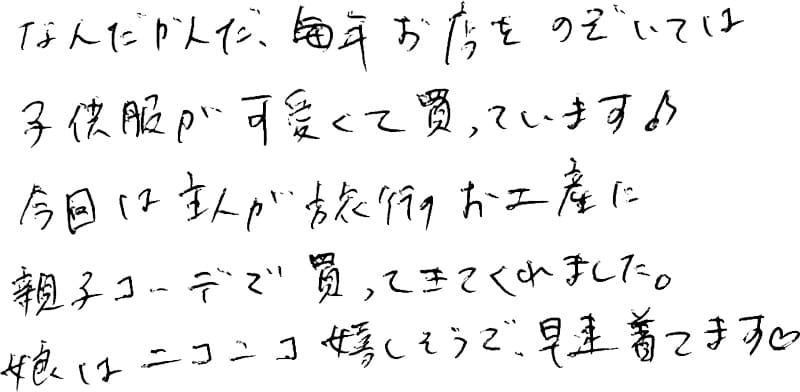 なんだかんだ、毎年お店をのぞいては
子供服が可愛くて買っています♪
今回は主人が旅行のお土産に
親子コーデで買ってきてくれました。
娘はニコニコ嬉しそうで、早速着てます♡